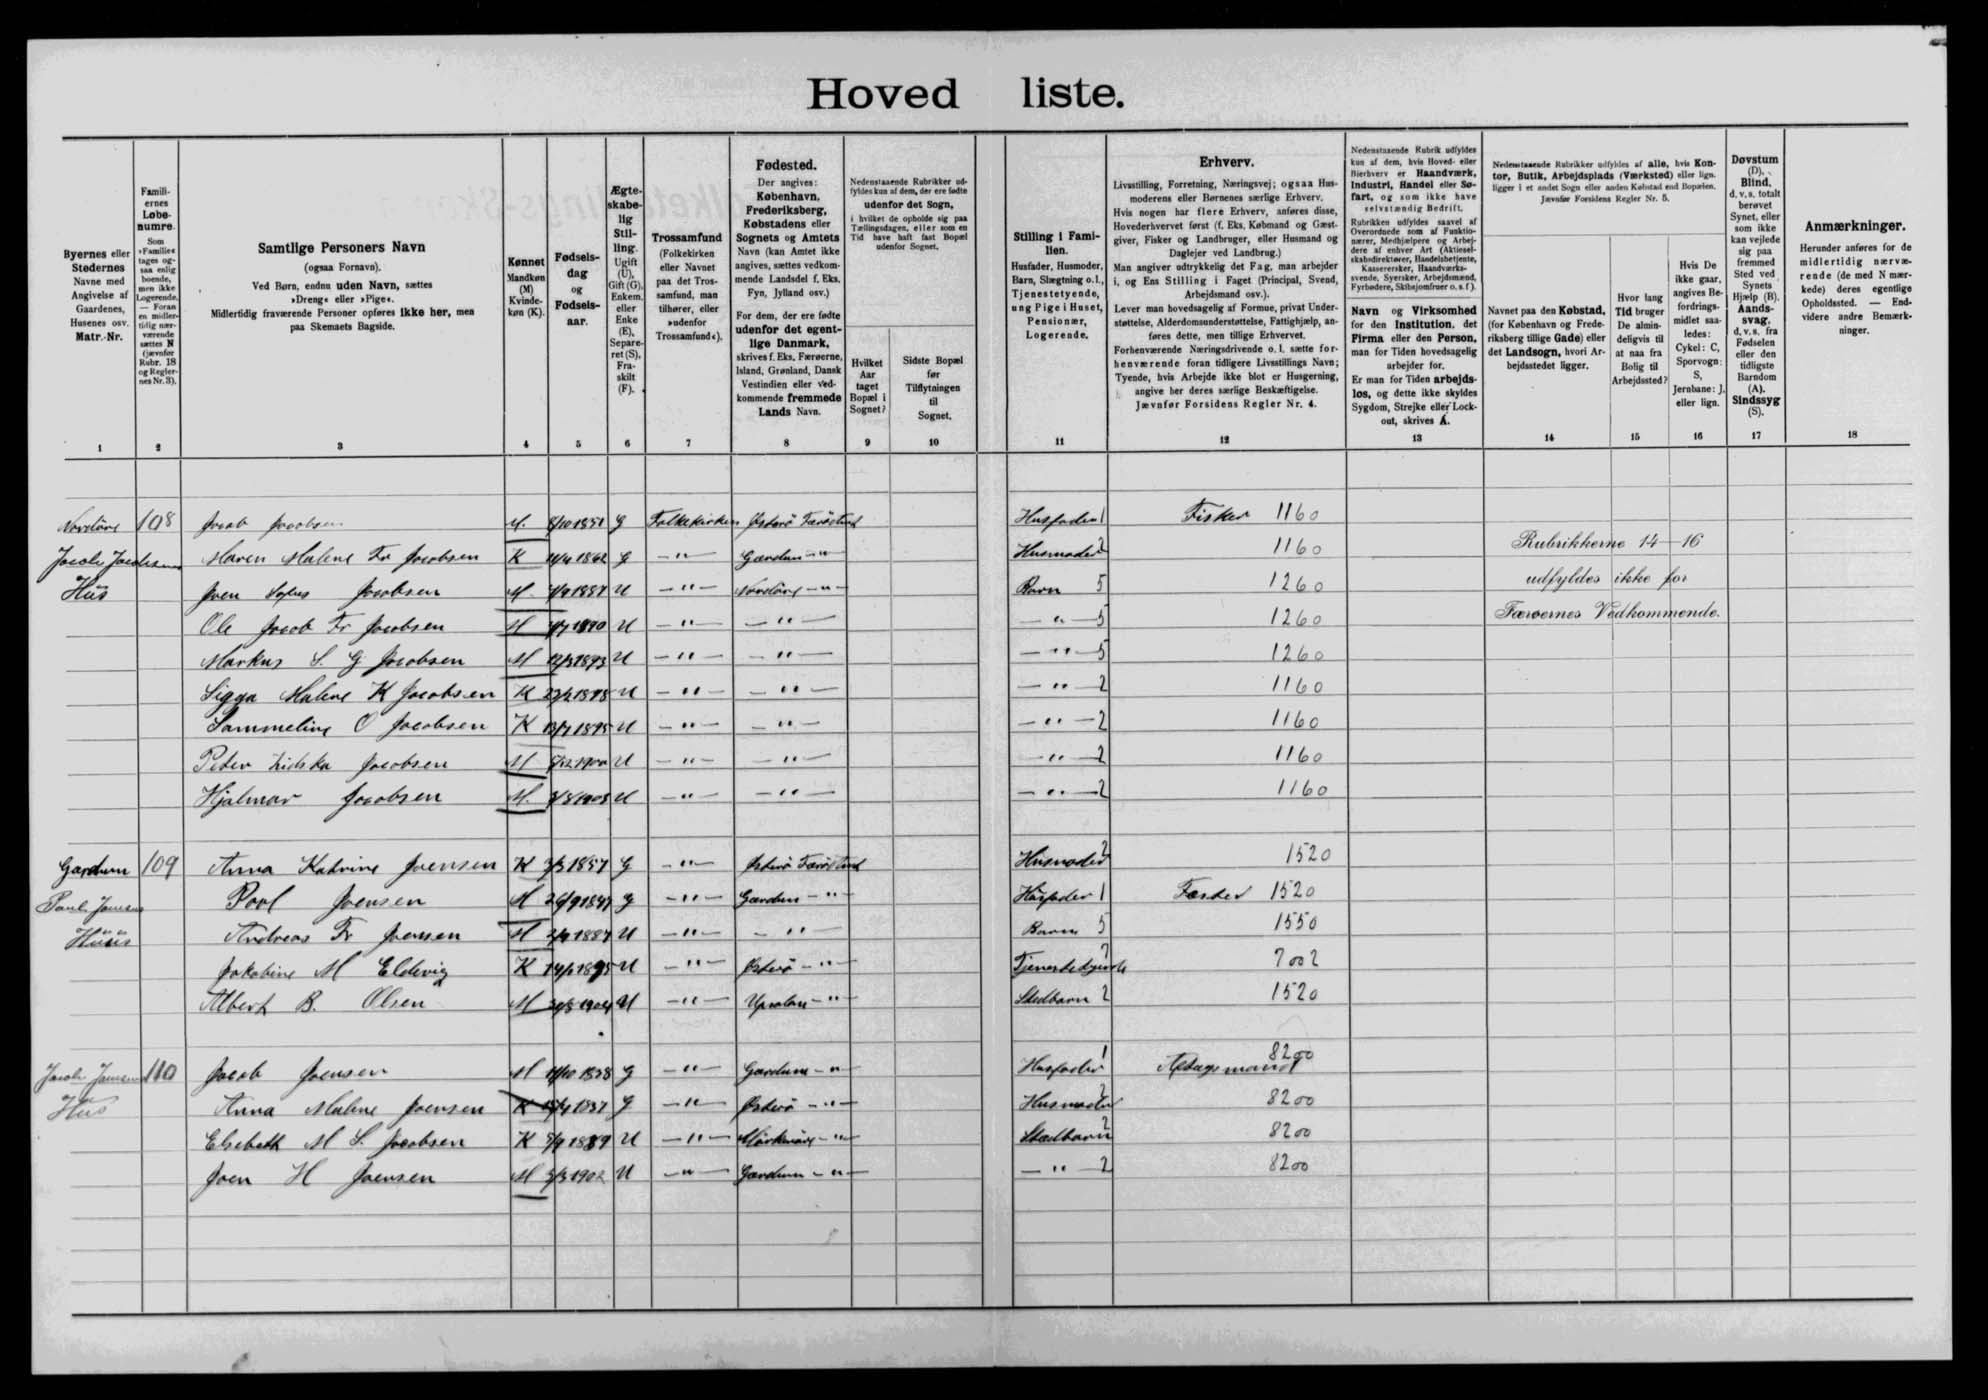 Hoved liste.
Byernes eller Stedernes Navne med Angivelse af Gaardenes, Husenes osv. Matr.-Nr.
Famili-ernes Løbe-numre. Som »Familie« tages og-saa enlig boende, men ikke Logerende. — Foran en midler-tidig nær-værende sættes N (jævnfør Rubr. 18 og Regler-nes Nr. 3).
Samtlige Personers Navn
(ogsaa Fornavn).
Ved Børn, endnu uden Navn, sættes
»Dreng« eller »Pige«.
Midlertidig fraværende Personer opføres ikke her, men
paa Skemaets Bagside.
Kønnet Mandkøn (M) Kvinde-køn (K).
Fødsels-dag og Fødsels-aar.
Ægte-skabe-lig Stil-ling. Ugift (U), Gift (G), Enkem. eller Enke (E), Separe-ret (S), Fra-skilt (F).
Trossamfund (Folkekirken eller Navnet paa det Tros-samfund, man tilhører, eller »udenfor Trossamfund«).
Fødested.
Der angives: København, Frederiksberg, Købstadens eller Sognets og Amtets Navn (kan Amtet ikke angives, sættes vedkom-mende Landsdel f. Eks. Fyn, Jylland osv.)
For dem, der ere fødte udenfor det egent-lige Danmark, skrives f. Eks. Færøerne, Island, Grønland, Dansk Vestindien eller Ved-kommende fremmede Lands Navn.
Nedenstaaende Rubrikker ud-fyldes kun af dem, der ere fødte udenfor det Sogn, i hvilket de opholde sig paa Tællingsdagen, eller som en Tid have haft fast Bopæl udenfor Sognet.
Hvilket Aar taget Bopæl i Sognet?
Sidste Bopæl før Tilflytningen til Sognet.
Stilling i Fami-lien.
Husfader, Husmoder, Barn, Slægtning o. l., Tjenestetyende, ung Pige i Huset, Pensionær, Logerende.
Erhverv.
Livsstilling, Forretning, Næringsvej; ogsaa Hus-moderens eller Børnenes særlige Erhverv.
Hvis nogen har flere Erhverv, anføres disse, Hovederhvervet først (f. Eks. Købmand og Gæst-giver, Fisker og Landbruger, eller Husmand og Daglejer ved Landbrug.)
Man angiver udtrykkelig det Fag, man arbejder i, og Ens Stilling i Faget (Principal, Svend, Arbejdsmand osv.).
Lever man hovedsagelig af Formue, privat Under-støttelse, Alderdomsunderstøttelse, Fattighjælp, an-føres dette, men tillige Erhvervet.
Forhenværende Næringsdrivende o. l. sætte for-henværende foran tidligere Livsstillings Navn; Tyende, hvis Arbejde ikke blot er Husgerning, angive her deres særlige Beskæftigelse.
Jævnfør Forsidens Regler Nr. 4.
Nedenstaaende Rubrik udfyldes kun af dem, hvis Hoved- eller Bierhverv er Haandværk, Industri, Handel eller Sø-fart, og som ikke have selvstændig Bedrift.
Rubrikken udfyldes saavel af Overordnede som af Funktio-nærer, Medhjælpere og Arbej-dere af enhver Art (Aktiesel-skabsdirektører, Handelsbetjente, Kasserersker, Haandværks-svende, Syersker, Arbejdsmænd, Fyrbødere, Skibsjomfruer o. s. f.).
Navn og Virksomhed for den Institution, det Firma eller den Person, man for Tiden hovedsagelig arbejder for.
Er man for Tiden arbejds-løs, og dette ikke skyldes Sygdom, Strejke eller Lock-out, skrives A.
Nedenstaaende Rubrikker udfyldes af alle, hvis Kon-tor, Butik, Arbejdsplads (Værksted) eller lign. ligger i et andet Sogn eller anden Købstad end Bopælen. Jævnfør Forsidens Regler Nr. 5.
Navnet paa den Købstad, (for København og Frede-riksberg tillige Gade) eller det Landsogn, hvori Ar-bejdsstedet ligger.
Hvor lang Tid bruger De almin-deligvis til at naa fra Bolig til Arbejdssted?
Hvis De ikke gaar, angives Be-fordrings-midlet saa-ledes: Cykel: C, Sporvogn: S, Jernbane: J, eller lign.
Døvstum (D), Blind, d. v. s. totalt berøvet Synet, eller som ikke kan vejlede sig paa fremmed Sted ved Synets Hjælp (B). Aands-svag, d. v. s. fra Fødselen eller den tidligste Barndom (A). Sindssyg (S).
Anmærkninger.
Herunder anføres for de midlertidig nærvæ-rende (de med N mær-kede) deres egentlige Opholdssted. — End-videre andre Bemærk-ninger.
1 2 3 4 5 6 7 8 9 10 11 12 13 14 15 16 17 18
108 Jacob Jacobsen M. 1851 G Folkekirken Østerø Husfader 1 Fisker 1160
Jacob Jacobsens Maren Malene Fr Jacobsen K 1862 G —"— —"— Husmoder 2 1160 Rubrikkerne 14—16
Hus Joen Jacobsen M 1887 U —"— —"— Barn 5 1260 udfyldes ikke for
Ole Jacob Fr Jacobsen M 1890 U —"— —"— —"— 5 1260 Færøernes Vedkommende.
Markus S. G Jacobsen M 12/3 1893 U —"— —"— —"— 5 1260
Sigga Malene K Jacobsen K U —"— —"— —"— 2 1160
Sammeline O Jacobsen K 1895 U —"— —"— —"— 2 1160
Peter Jacobsen M 1900 U —"— —"— —"— 2 1160
Hjalmar Jacobsen M. U —"— —"— —"— 2 1160
109 Anna Katrine Joensen K 1857 G —"— Østerø Husmoder 2 1520
Poul Joensen M G —"— —"— Husfader 1 Fæster 1520
Andreas Fr Joensen M U —"— —"— Barn 5 1550
Jakobine M Eldevig K U —"— Østerø —"— 7002
Albert B. Olsen M U —"— —"— Stedbarn 2 1520
110 Jacob Joensen M G —"— —"— Husfader 1 8200
Hus Anna Malene Joensen K 1837 G —"— Østerø —"— Husmoder 2 8200
Elsebeth M S. Jacobsen K U —"— —"— 2 8200
Joen H Joensen M 1902 U —"— —"— —"— 2 8200